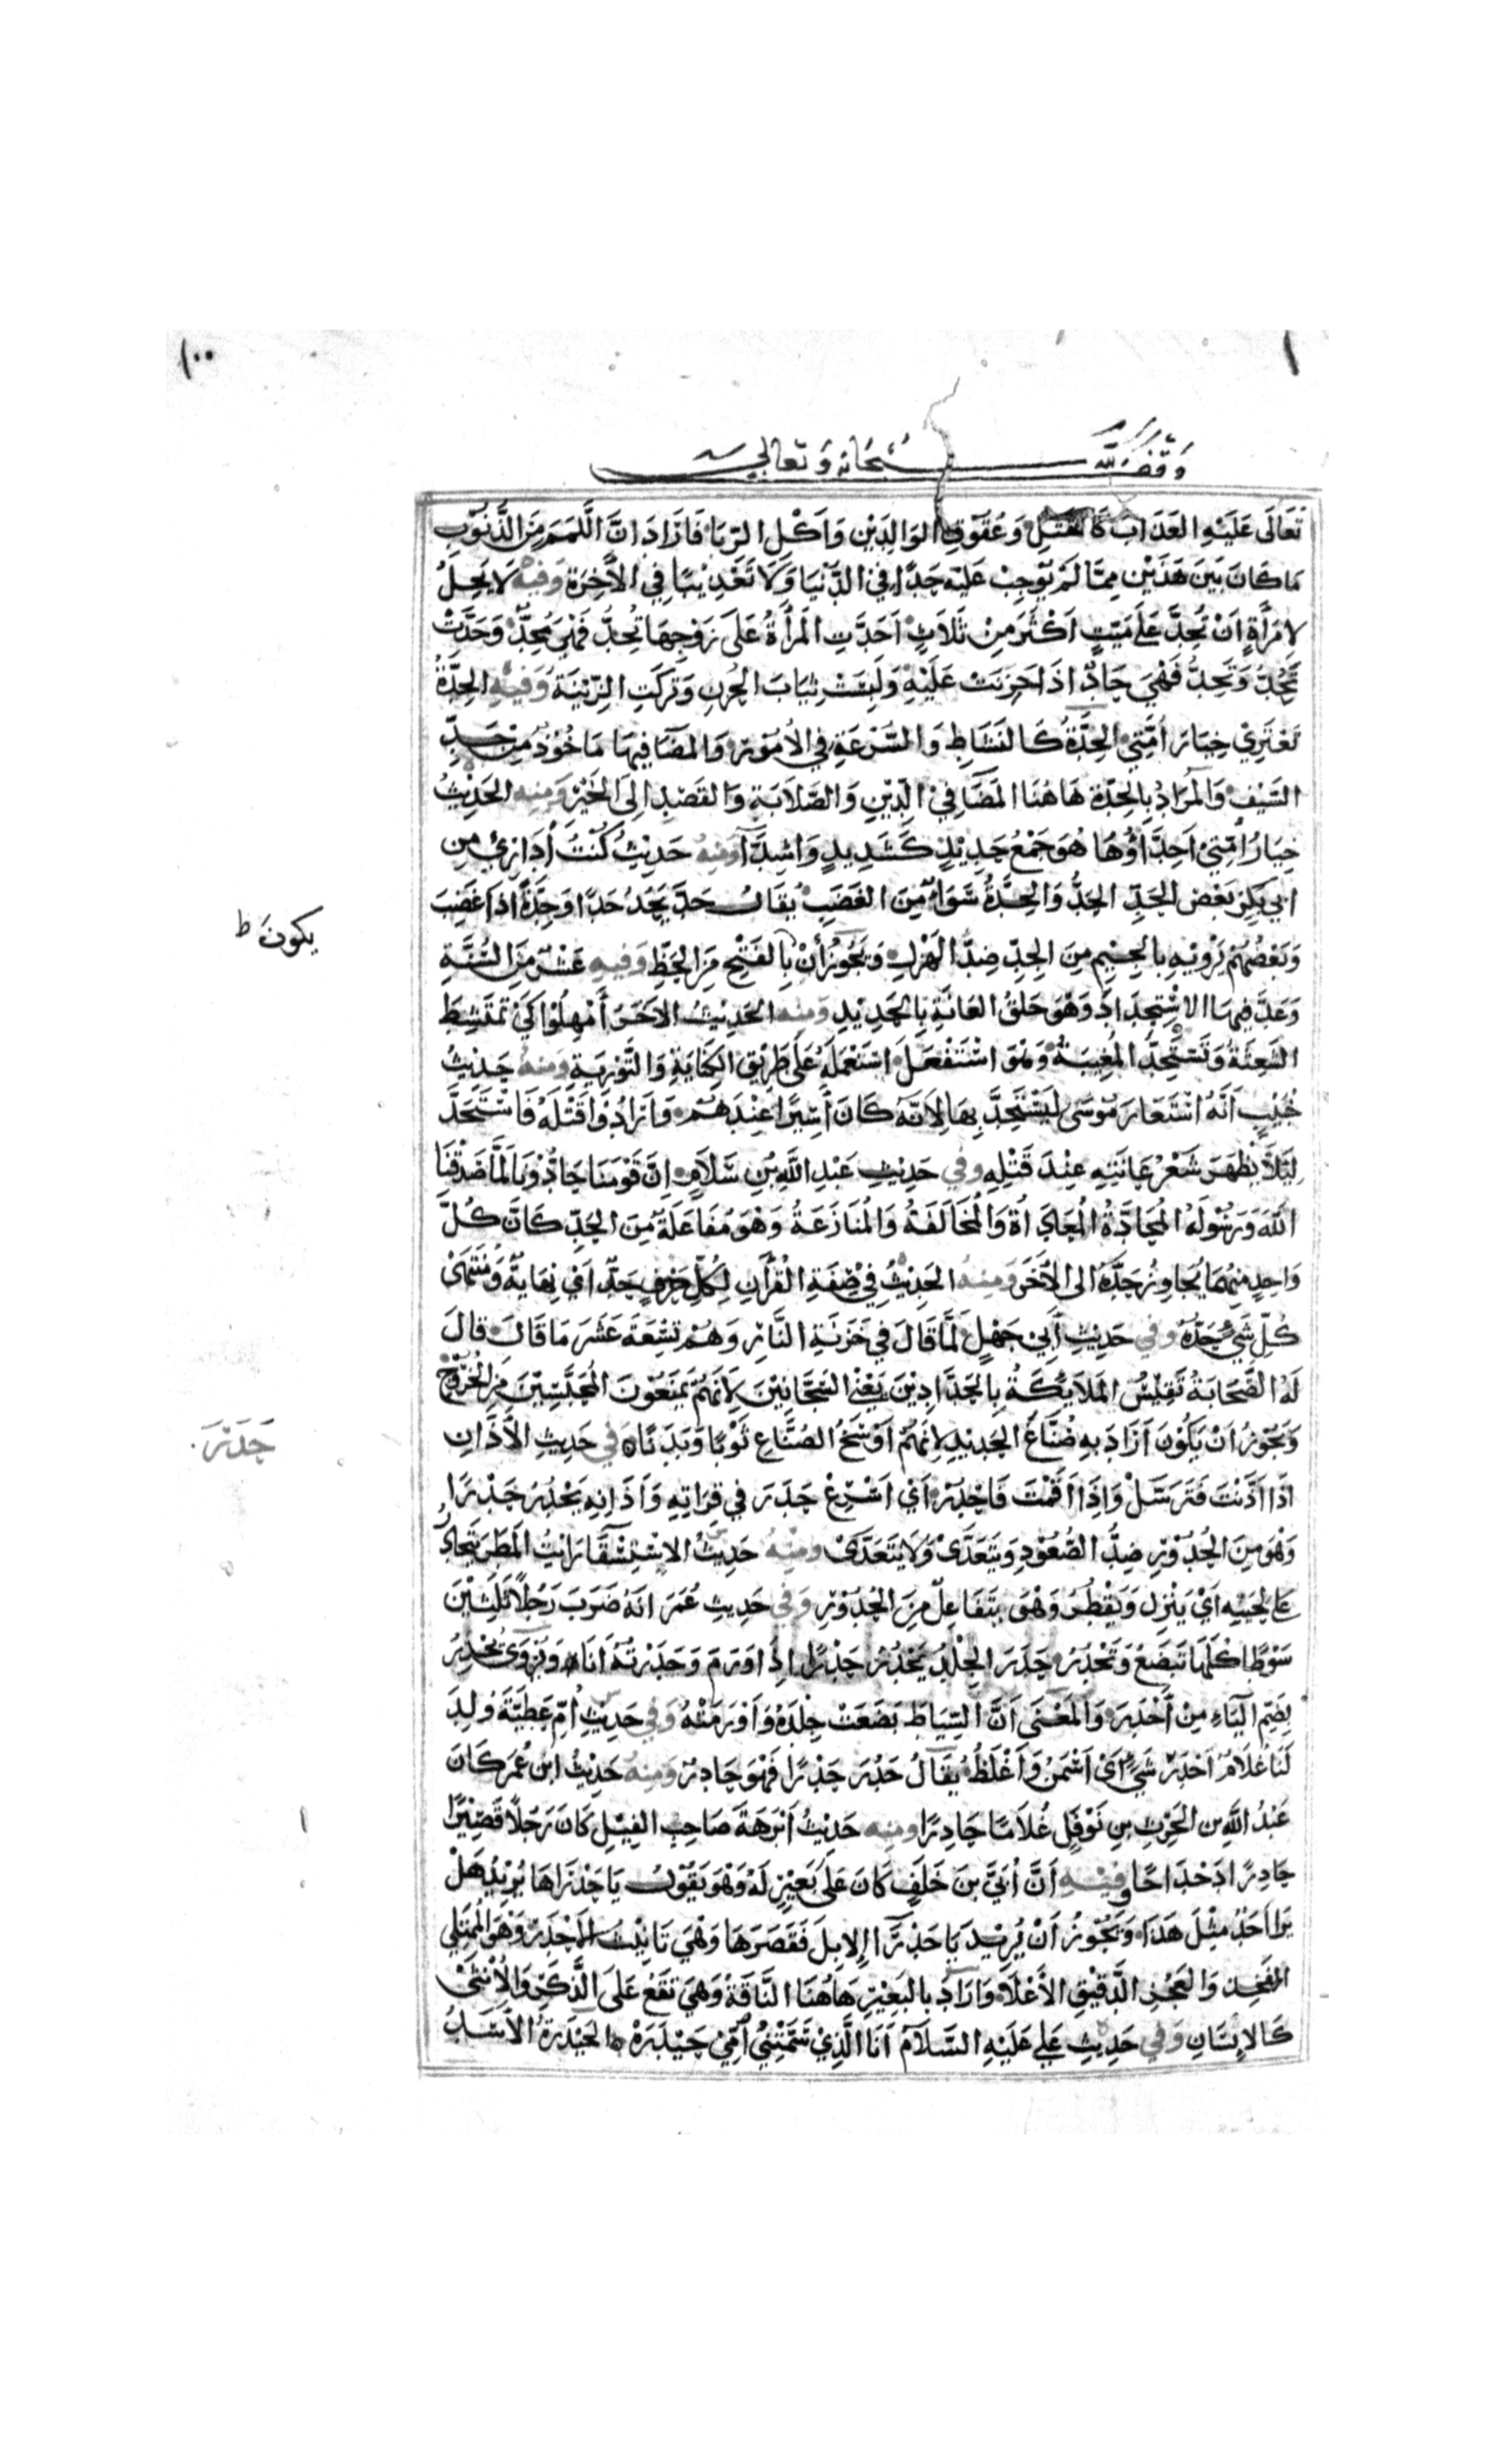 ١٠٠
وقف لله سبحانه وتعالى
تَعَالَى عَلَيْهِ العَذَابَ كَالقَتْلِ وَعُقُوقِ الوَالِدَيْنِ وَأَكْلِ الرِّبَا فَأَرَادَ أَنَّ اللَّمَمَ مِنَ الذُّنُوبِ
مَا كَانَ بَيْنَ هَذَيْنِ مِمَّا لَمْ يُوجِبْ عَلَيْهِ حَدًّا فِي الدُّنْيَا وَلَا تَعْذِيبًا فِي الآخِرَةِ وَفِيهِ لَا يَحِلُّ
لِامْرَأَةٍ أَنْ تُحِدَّ عَلَى مَيِّتٍ أَكْثَرَ مِنْ ثَلَاثٍ أَحَدَّتِ المَرْأَةُ عَلَى زَوْجِهَا تُحِدُّ فَهِيَ مُحِدٌّ وَحَدَّتْ
تَحُدُّ وَتَحِدُّ فَهْيَ حَادٌّ إِذَا حَزِنَتْ عَلَيْهِ وَلَبِسَتْ ثِيَابَ الحُزْنِ وَتَرَكَتِ الزِّيْنَةَ وَفِيهِ الحِدَّةُ
تَعْتَرِي خِيَارَ أُمَّتِي الحِدَّةُ كَالنَّشَاطِ وَالسُّرْعَةِ فِي الأُمُوْرِ وَالمَضَا فِيهَا مَاخُوْذٌ مِنْ حَدِّ
السَّيْفِ وَالمُرَادُ بِالحِدَّةِ هَاهُنَا المَضَا فِي الدِّيْنِ وَالصَّلَابَةِ وَالقَصْدِ إِلَى الخَيْرِ وَمِنْهُ الحَدِيْثُ
خِيَارُ أُمَّتِي أَحِدَّاؤُهَا هُوَ جَمْعُ حَدِيْدٍ كَشَدِيدٍ وَأَشِدَّآ وَمِنْهُ حَدِيْثُ كُنْتُ أُدَارِئُ مِن
أَبِي بَكْرٍ بَعْضَ الحَدِّ الحَدُّ وَالحِدَّةُ سَوَاءٌ مِنَ الغَضَبِ يُقَالُ حَدَّ يَحِدُّ حَدًّا وَحِدَّةً إِذَا غَضِبَ
وَبَعْضُهُمْ يَرْوِيْهِ بِالجِيْمِ مِنَ الجِدِّ ضِدَّ الهَزْلِ وَيَجُوْزُ أَنْ بِالفَتْحِ مِنَ الحَظِّ وَفِيهِ عَشْرٌ مِنَ السُّنَّةِ
يكون ط
وَعَدَّ فِيهَا الاسْتِحْدَادَ وَهْوَ حَلْقُ العَانَةِ بِالحَدِيْدِ وَمِنْهُ الحَدِيْثُ الآخَرُ أَمْهِلُوْا كَيْ تَمْتَشِطَ
الشَّعِثَةُ وَتَسْتَحِدَّ المُغِيبَةُ وَهْوَ اسْتَفْعَلَ اسْتَعْمَلَهُ عَلَى طَرِيْقِ الكِنَايَةِ وَالتَّوْرِيَةِ وَمِنْهُ حَدِيْثُ
خُبَيْبٍ أَنَّهُ اسْتَعَارَ مُوْسَى لِيَسْتَحِدَّ بِهَا لِأَنَّهُ كَانَ أَسِيْرًا عِنْدَهُمْ وَأَرَادُوْا قَتْلَهُ فَاسْتَحَدَّ
لِئَلَّا يَظْهَرَ شَعْرُ عَانَتِهِ عِنْدَ قَتْلِهِ وفي حَدِيْثِ عَبْدِ اللَّهِ بْنِ سَلَامٍ إِنَّ قَوْمَنَا حَادُّوْنَا لَمَّا صَدَّقْنَا
اللَّهَ وَرَسُوْلَهُ المُحَادَّةُ المُعَادَاةُ وَالمُخَالَفَةُ وَالمُنَازَعَةُ وَهْوَ مُفَاعَلَةٌ مِنَ الحَدِّ كَانَّ كُلَّ
وَاحِدٍ مِنْهُمَا يُجَاوِزُ حَدَّهُ إِلَى الآخَرِ وَمِنْهُ الحَدِيْثُ فِي صِفَةِ القُرْآنِ لِكُلِّ حَرْفٍ حَدٌّ أَيْ نِهَايَةٌ وَمُنْتَهَى
كُلِّ شَيْءٍ حَدُّهُ وفي حَدِيْثِ أَبِي جَهْلٍ لَمَّا قَالَ فِي خَزَنَةِ النَّارِ وَهُمْ تِسْعَةَ عَشَرَ مَا قَالَ قَالَ
لَهُ الصَّحَابَةُ تَقِيْسُ المَلَائِكَةُ بِالحَدَّادِيْنَ يَعْنِي السَّجَّانِيْنَ لِأَنَّهُمْ يَمْنَعُوْنَ المُحَبَّسِيْنَ مِنَ الخُرُوْجِ
وَيَجُوْزُ أَنْ يَكُوْنَ أَرَادَ بِهِ صُنَّاعَ الحَدِيْدِ لِأَنَّهُمْ أَوْسَخُ الصُّنَّاعِ ثَوْبًا وَبَدَنًا وفي حَدِيثِ الأَذَانِ
حَدَرَ
إِذَا أَذَّنْتَ فَتَرَسَّلْ وَإِذَا أَقَمْتَ فَاحْدُرْ أَيْ أَسْرِعْ حَدَرَ فِي قِرَاتِهِ وَأَذَانِهِ يَحْدُرُ حَدْرًا
وَهْوَ مِنَ الحُدُوْرِ ضِدُّ الصُّعُوْدِ وَيَتَعَدَّى وَلَا يَتَعَدَّى وَمِنْهُ حَدِيْثُ الاسْتِسْقَآ رَايْتُ المَطَرَ يَتَحَادَرُ
عَلَى لِحْيَتِهِ أَيْ يَنْزِلُ وَيَقْطُرُ وَهْوَ يَتَفَاعَلُ مِنَ الحُدُوْرِ وَفِي حَدِيثِ عُمَرَ أَنَّهُ ضَرَبَ رَجُلًا ثَلَثِيْنَ
سَوْطًا كُلُّهَا تَبْضَعُ وَتَحْدُرُ حَدَرَ الجِلْدُ يَحْدُرُ حَدْرًا إِذَا وَرِمَ وَحَدَرْتُهُ أَنَا وَيُرْوَى تُحْدِرُ
بِضَمِّ اليَاءِ مِنْ أَحْدَرَ وَالمَعْنَى أَنَّ السِّيَاطَ بَضَعَتْ جِلْدَهُ وَأَوْرَمَتْهُ وَفِي حَدِيْثِ أُمِّ عَطِيَّةَ وُلِدَ
لَنَا غُلَامٌ أَحْدَرُ شَيْءٍ أَيْ أَسْمَنُ وَأَغْلَظُ يُقَالُ حَدُرَ حَدْرًا فَهْوَ حَادِرٌ وَمِنْهُ حَدِيْثُ ابْنِ عُمَرَ كَانَ
عَبْدُ اللَّهِ بن الحَرْثِ بنِ نَوْفَلٍ غُلَامًا حَادِرًا ومنه حَدِيْثُ أَبْرَهَةَ صَاحِبِ الفِيْلِ كَانَ رَجُلًا قَصِيْرًا
حَادِرًا دَحْدَاحًا وفيه أَنَّ أُبَيَّ بنَ خَلَفٍ كَانَ عَلَى بَعِيْرٍ لَهُ وَهْوَ يَقُوْلُ يَا حَدْرَاهَا يُرِيْدُ هَلْ
رَأى أحَدٌ مِثْلَ هَذَا وَيَجُوْزُ أَنْ يُرِيْدَ يَا حَدْرَآ الإِبِلَ فَقَصَرَهَا وَهْيَ تَانِيْثُ الأَحْدَرِ وَهْوَ المُمْتَلِي
الفَخِذِ وَالعَجُزِ الدَّقِيْقِ الأَعْلَا وَأَرَادَ بِالبَعِيْرِ هَاهُنَا النَّاقَةَ وَهْيَ تَقَعُ عَلَى الذَّكَرِ وَالأُنْثَى
كَالإِنْسَانِ وَفِي حَدِيْثِ عَلِي عَلَيْهِ السَّلَامُ أَنَا الَّذِيْ سَمَّتْنِي أُمِّيْ حَيْدَرَهْ الحَيْدَرَةُ الأَسَدُ